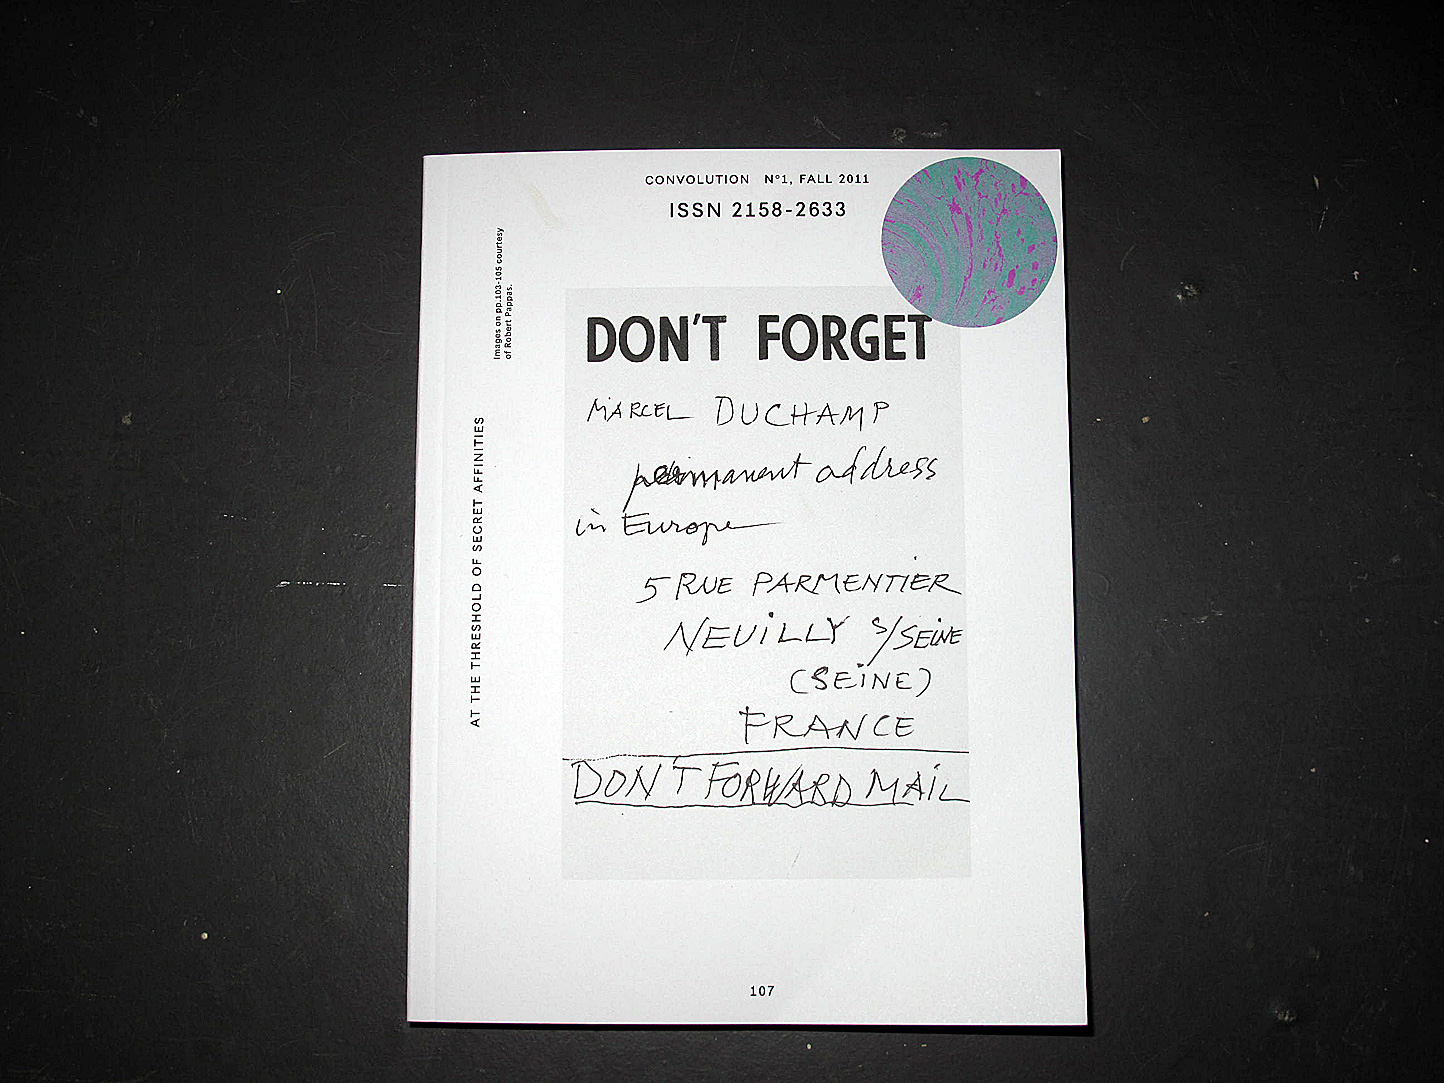 CONVOLUTION N°1, FALL 2011
ISSN 2158-2633
Images on pp.103-105 courtesy
of Robert Pappas.
AT THE THRESHOLD OF SECRET AFFINITIES
DON'T FORGET
MARCEL DUCHAMP
permanent address
in Europe
5 RUE PARMENTIER
NEUILLY S/SEINE
(SEINE)
FRANCE
DON'T FORWARD MAIL
107